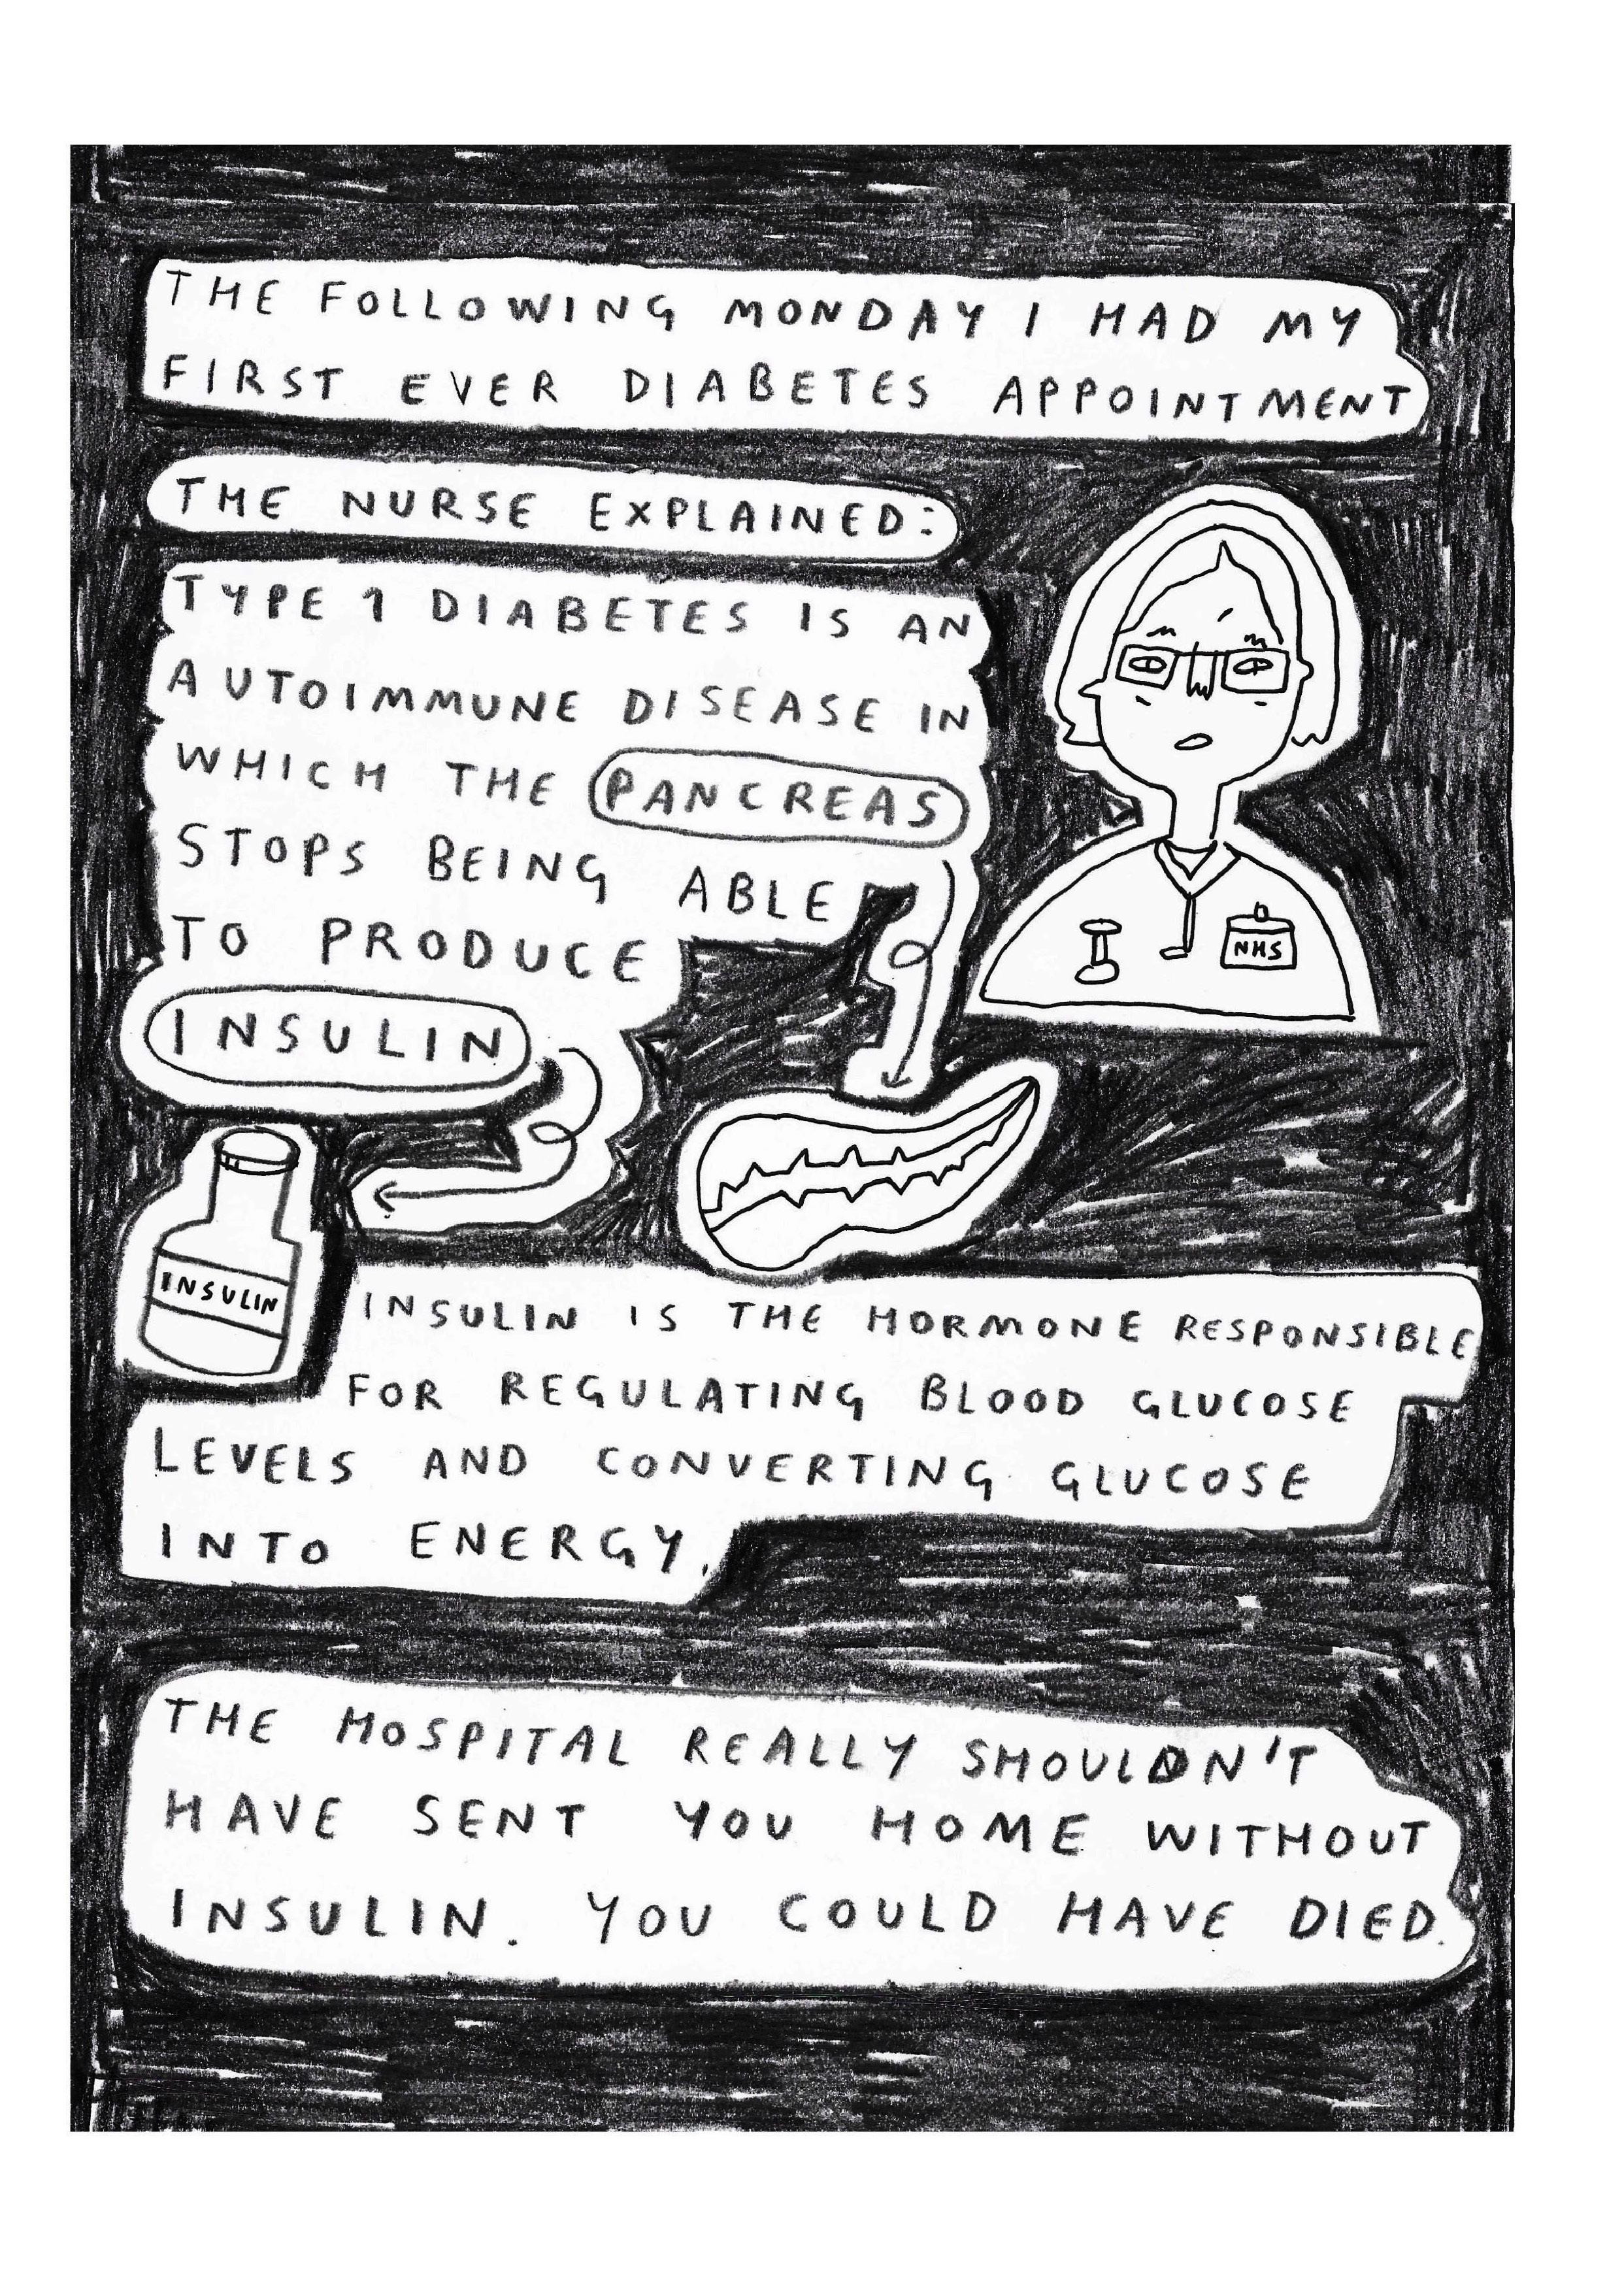 THE FOLLOWING MONDAY I HAD MY
FIRST EVER DIABETES APPOINTMENT
THE NURSE EXPLAINED:
TYPE 1 DIABETES IS AN
AUTOIMMUNE DISEASE IN
WHICH THE PANCREAS
STOPS BEING ABLE
TO PRODUCE
INSULIN
NHS
INSULIN
INSULIN IS THE HORMONE RESPONSIBLE
FOR REGULATING BLOOD GLUCOSE
LEVELS AND CONVERTING GLUCOSE
INTO ENERGY.
THE HOSPITAL REALLY SHOULDN'T
HAVE SENT YOU HOME WITHOUT
INSULIN. YOU COULD HAVE DIED.